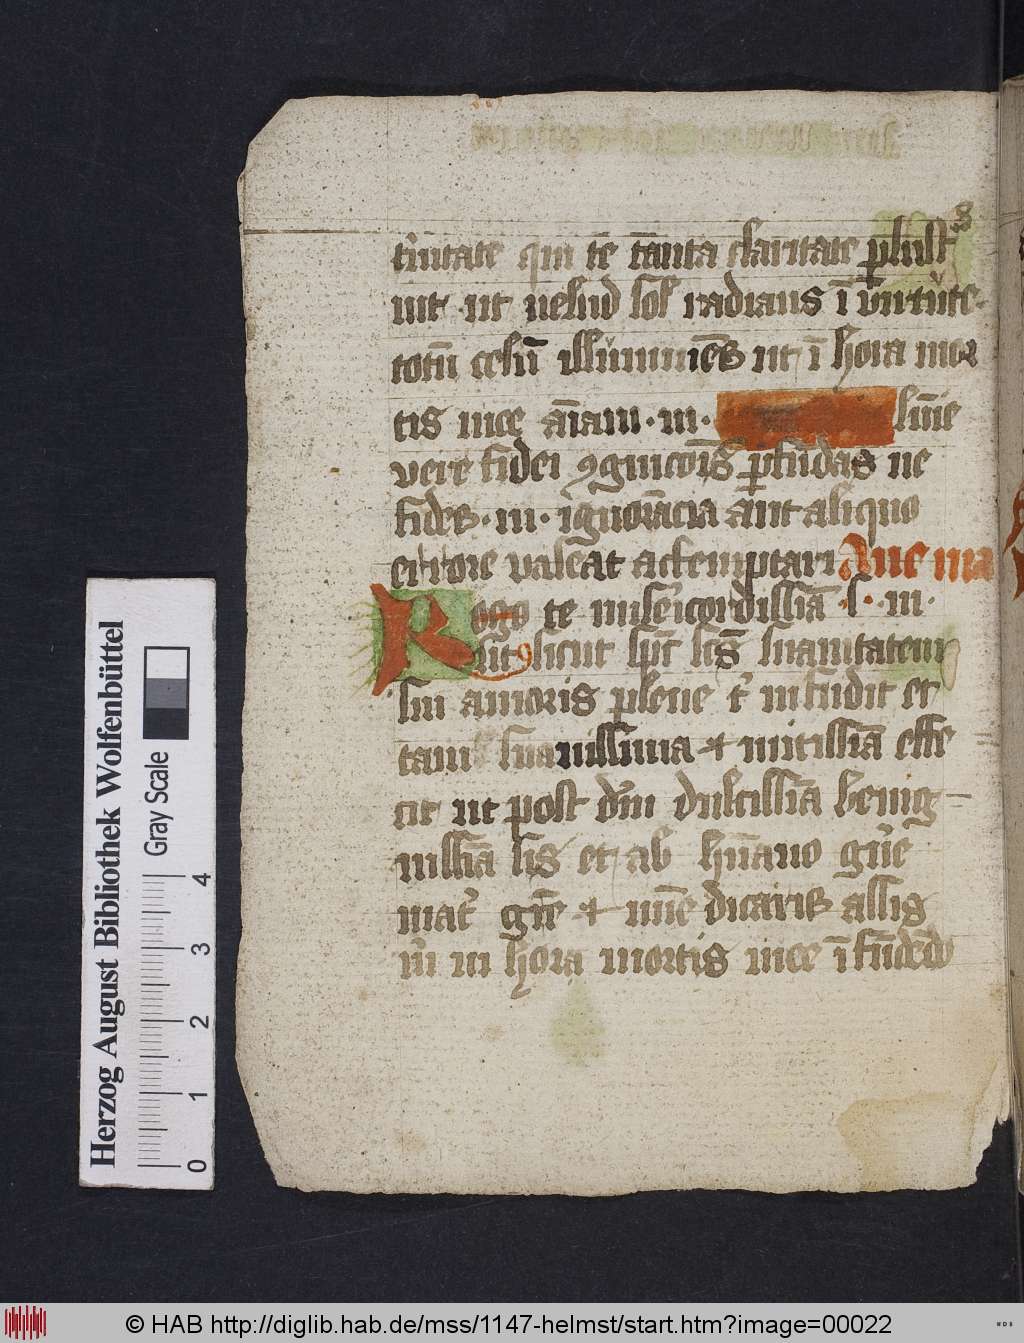 t'nitate qui te tāuta claritate ꝑlust
s
uit ut uelud sol radians ī virtute
totū celū illuminēs ut ī hora mor
tis mee aīam m
lumē
vere fidei ꝯgnicōis ꝑfūdas ne
fides m ignorācia aut aliquo
errore valeat actemptari Aue ma
Rogo te misericordissīa m
ut sicut spc scs suauitatem
sui amoris plene infudit et
tam suauissima mitissīa effe
cit ut post dm dulcissīa benig
nissīa sis et ab humano
mat dicaris assis
m in hora mortis mee īfūdēdo
Herzog August Bibliothek Wolfenbüttel
Gray Scale
0 1 2 3 4
© HAB http://diglib.hab.de/mss/1147-helmst/start.htm?image=00022
WDB